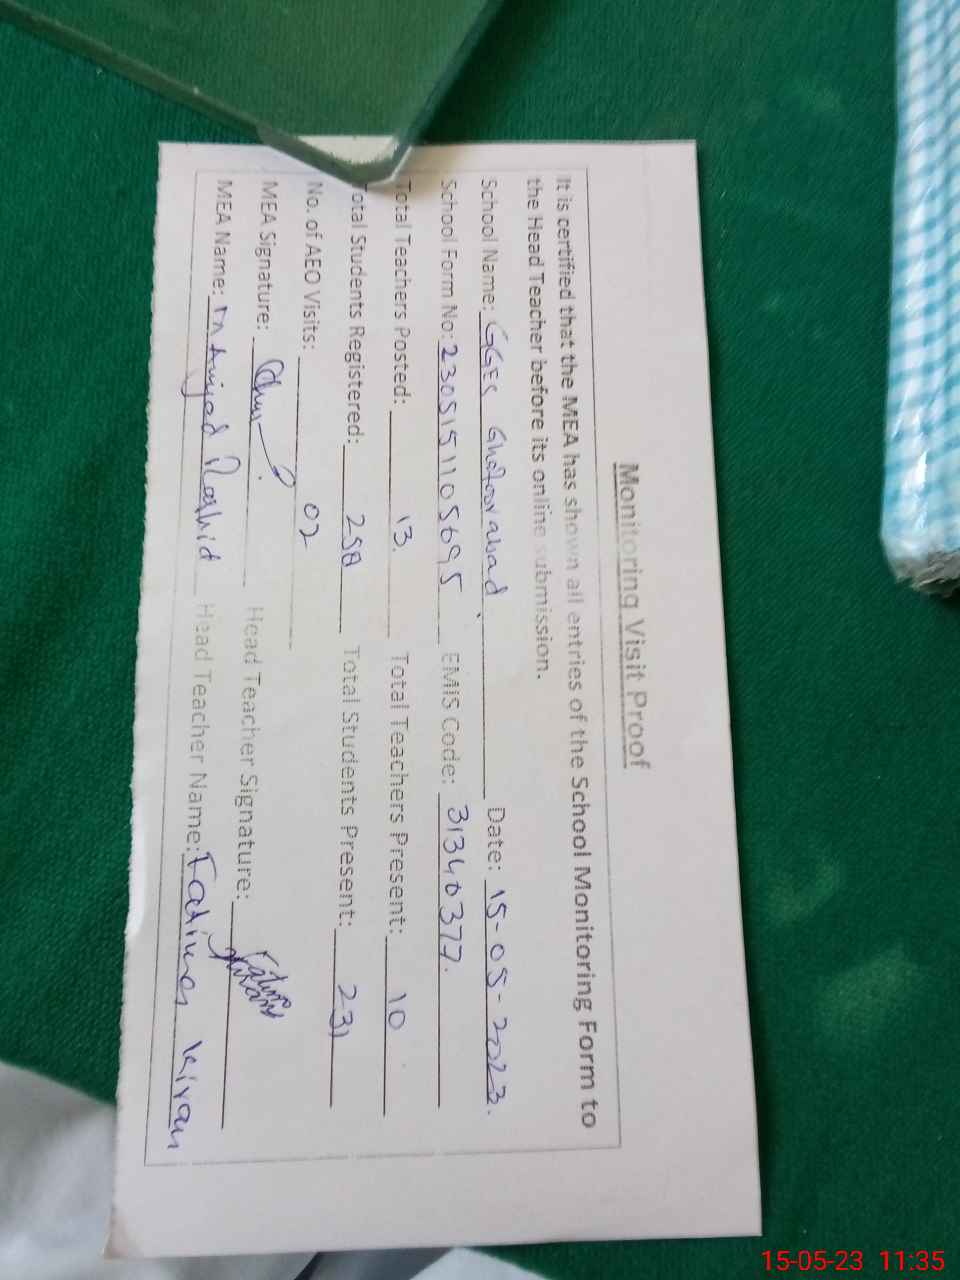 Monitoring Visit Proof
It is certified that the MEA has shown all entries of the School Monitoring Form to
the Head Teacher before its online submission.
School Name: GGES Ghafoorabad Date: 15-05-2023.
School Form No: 2305151105695 EMIS Code: 31340377.
Total Teachers Posted: 13. Total Teachers Present: 10
Total Students Registered: 258 Total Students Present: 231
No. of AEO Visits: 02
MEA Signature: Head Teacher Signature: Fatima Kiran
MEA Name: M Amjad Rashid Head Teacher Name: Fatima Kiran
15-05-23 11:35